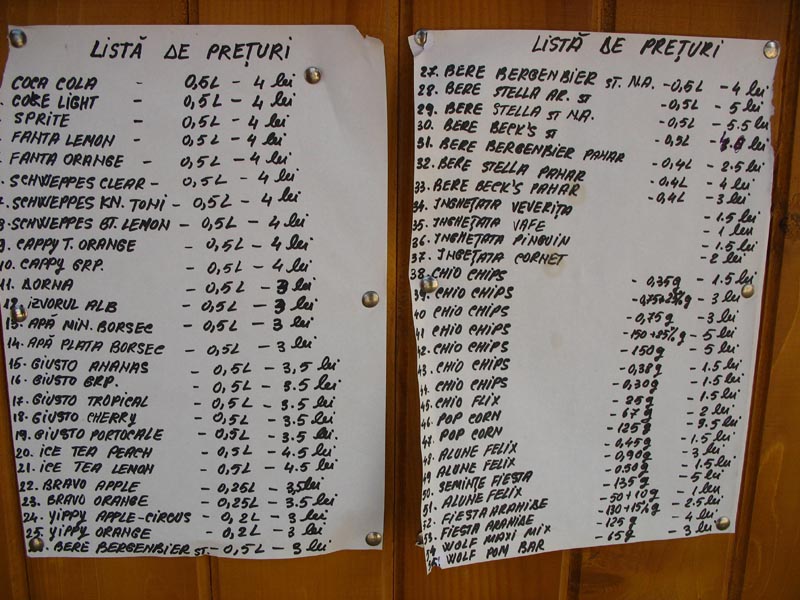 LISTĂ DE PREȚURI
COCA COLA - 0,5L - 4 lei
COKE LIGHT - 0,5L - 4 lei
SPRITE - 0,5L - 4 lei
FANTA LEMON - 0,5L - 4 lei
FANTA ORANGE - 0,5L - 4 lei
SCHWEPPES CLEAR - 0,5L - 4 lei
SCHWEPPES KN. TONI - 0,5L - 4 lei
SCHWEPPES BT. LEMON - 0,5L - 4 lei
9. CAPPY T. ORANGE - 0,5L - 4 lei
10. CAPPY GRP. - 0,5L - 4 lei
11. DORNA - 0,5L - 3 lei
12. IZVORUL ALB - 0,5L - 3 lei
13. APĂ MIN. BORSEC - 0,5L - 3 lei
14. APĂ PLATA BORSEC - 0,5L - 3 lei
15. GIUSTO ANANAS - 0,5L - 3,5 lei
16. GIUSTO GRP. - 0,5L - 3.5 lei
17. GIUSTO TROPICAL - 0,5L - 3.5 lei
18. GIUSTO CHERRY - 0,5L - 3.5 lei
19. GIUSTO PORTOCALE - 0,5L - 3.5 lei.
20. ICE TEA PEACH - 0,5L - 4.5 lei
21. ICE TEA LEMON - 0,5L - 4.5 lei
22. BRAVO APPLE - 0,25L - 3,5 lei
23. BRAVO ORANGE - 0,25L - 3.5 lei
24. YIPPY APPLE-CIRCUS - 0,2L - 3 lei
25. YIPPY ORANGE - 0,2L - 3 lei
BERE BERGENBIER ST. - 0,5L - 3 lei
LISTĂ DE PREȚURI
27. BERE BERGENBIER ST. N.A. - 0,5L - 4 lei
28. BERE STELLA AR. ST - 0,5L - 5 lei
29. BERE STELLA ST NA. - 0,5L - 5.5 lei
30. BERE BECK'S ST - lei
31. BERE BERGENBIER PAHAR - 0,4L - 2.5 lei
32. BERE STELLA PAHAR - 0,4L - 4 lei
33. BERE BECK'S PAHAR - 0,4L - 3 lei
34. INGHEȚATA VEVERIȚA - 1.5 lei
35. INGHEȚATA VAFE - 1 leu
36. INGHEȚATA PINGUIN - 1.5 lei
37. INGEȚATA CORNET - 2 lei
38. CHIO CHIPS - 0,35g - 1.5 lei
39. CHIO CHIPS - 3 lei
40 CHIO CHIPS - 0,75g - 3 lei
41 CHIO CHIPS - 150+25% g - 5 lei
42. CHIO CHIPS - 150g - 5 lei
43. CHIO CHIPS - 0,38g - 1.5 lei
44. CHIO CHIPS - 0,30g - 1.5 lei
45. CHIO FLIX - 25g - 1.5 lei
46. POP CORN - 67g - 2 lei
47. POP CORN - 125g - 3.5 lei
48. ALUNE FELIX - 0,45g - 1.5 lei
49 ALUNE FELIX - 0,90g - 3 lei
50. SEMINȚE FIESTA - 0,50g - 1.5 lei
51. ALUNE FELIX - 135g - 5 lei
52. FIESTA ARAHIDE - 50+10g - 1 leu
53. FIESTA ARAHIDE - 130+15% g - 2.5 lei
54 WOLF MAXI MIX - 125g - 4 lei
WOLF POM BAR - 65g - 3 lei